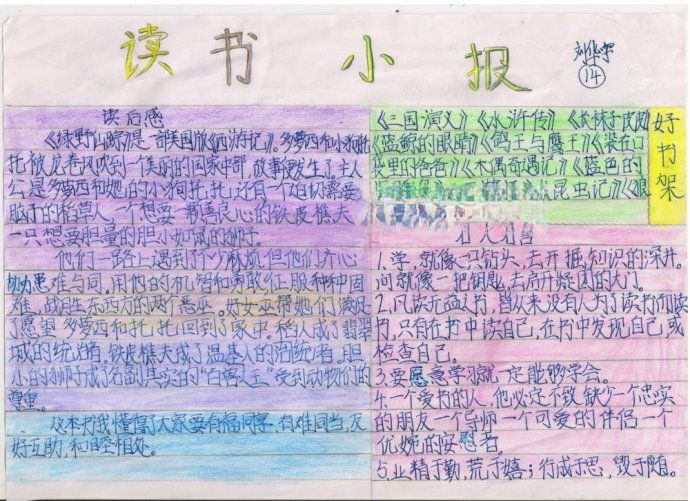 读书小报
刘华宇
14
读后感
《绿野仙踪》是一部美国版《西游记》。多萝西和小狗托
托被龙卷风吹到一个美丽的国家中部,故事便发生了。主人
公是多萝西和她的小狗托托,还有一个迫切需要
脑子的稻草人,一个想要一颗善良心的铁皮樵夫
一只想要胆量的胆小如鼠的狮子。
他们一路上遇到了不少麻烦但他们齐心
协力患难与同。用他的机智和勇敢征服种种困
难,战胜东西方的两个恶巫。好女巫帮她们满足
了愿望,多萝西和托托回到了家中。稻人成了翡翠
城的统治者,铁皮樵夫成了温基人的治统者,胆
小的狮子成了名副其实的“百兽之王”受到动物们的
尊重。
这本书我懂得了大家要有福同享,有难同当,友
好互助,和睦相处。
《三国演义》《水浒传》《长袜子皮皮》
《蓝鲸的眼睛》《鸽王与鹰王》《装在口
袋里的爸爸》《木偶奇遇记》《蓝色的
昆虫记》《狼
好书架
名人名言
1.学,就像一只钻头,去开掘知识的深井。
问就像一把钥匙,去启开疑团的大门。
2.凡读无益之书,皆从来没有人为了读书而读
书,只有在书中读自己,在书中发现自己,或
检查自己。
3.要愿意学习就一定能够学会。
4.一个爱书的人,他必定不致缺少一个忠实
的朋友一个导师一个可爱的伴侣一个
优婉的安慰者。
5,业精于勤,荒于嬉;行成于思,毁于随。